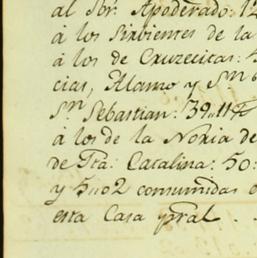 al Sor. Apoderado: 12
á los Sirbientes de la
á los de Cruzecitas:
cias, Alamo y Sn
Sn. Sebastian: 39.,11
á los de la Noria de
de Sta. Catalina: 50:
y 5.,02 consumidas
esta Casa pral.